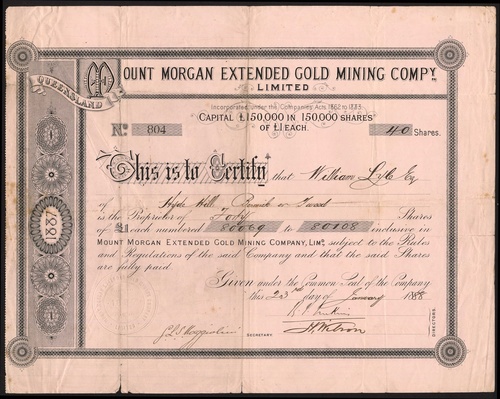 QUEENSLAND
MOUNT MORGAN EXTENDED GOLD MINING COMPY.
LIMITED
Incorporated under the Companies Acts 1862 to 1883.
CAPITAL £150,000 IN 150,000 SHARES
OF £1 EACH.
No. 804
40 Shares.
This is to Certify that William Lyle Esq
of Hyde Hill Berwick on Tweed
is the Proprietor of Forty Shares
of £1 each numbered 80069 to 80108 inclusive in
MOUNT MORGAN EXTENDED GOLD MINING COMPANY, LIMD. subject to the Rules
and Regulations of the said Company and that the said Shares
are fully paid
Given under the Common Seal of the Company
this 23rd day of January 1888
1887
SECRETARY
H. Wilson
DIRECTORS